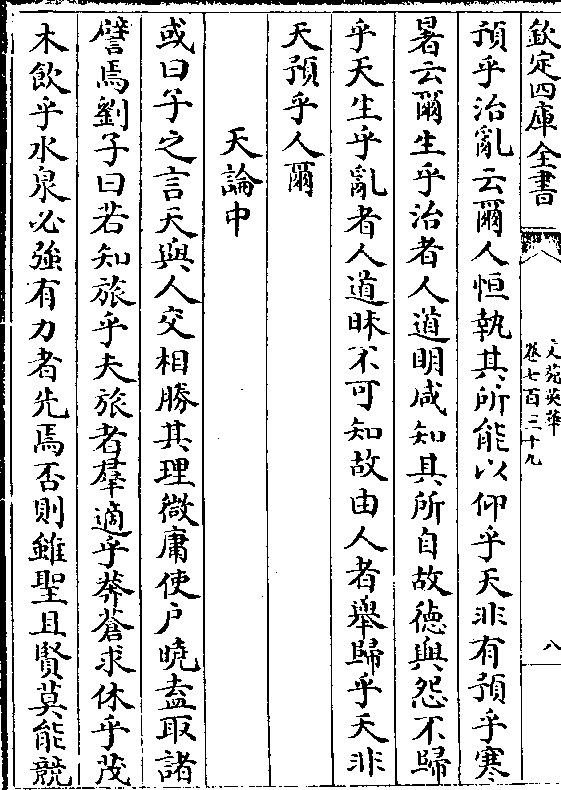 欽定四庫全書
文苑英華
卷七百三十九
八
預乎治亂云爾人恒執其所能以仰乎天非有預乎寒
暑云爾生乎治者人道明咸知其所自故德與怨不歸
乎天生乎亂者人道昧不可知故由人者舉歸乎天非
天預乎人爾
天論中
或曰子之言天與人交相勝其理微庸使户曉盍取諸
譬焉劉子曰若知旅乎夫旅者羣適乎莽蒼求休乎茂
木飲乎水泉必強有力者先焉否則雖聖且賢莫能競